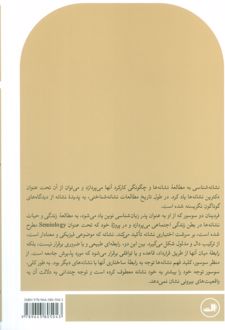 نشانه‌شناسی به مطالعهٔ نشانه‌ها و چگونگی کارکرد آنها می‌پردازد و می‌توان از آن تحت عنوان
دکترین نشانه‌ها یاد کرد. در طول تاریخ مطالعات نشانه‌شناختی، به پدیدهٔ نشانه از دیدگاه‌های
گوناگون نگریسته شده است.
فردینان دو سوسور که از او به عنوان پدر زبان‌شناسی نوین یاد می‌شود، به مطالعهٔ زندگی و حیات
نشانه‌ها در بطن زندگی اجتماعی می‌پردازد و در پروژهٔ خود که تحت عنوان Semiology مطرح
شده است، بر سرشت اختیاری نشانه تأکید می‌کند. نشانه که موضوعی فیزیکی و معنادار است،
از ترکیب دال و مدلول شکل می‌گیرد. بین این دو، رابطه‌ای طبیعی و یا ضروری برقرار نیست، بلکه
رابطهٔ میان آنها از طریق قرارداد، قاعده و یا توافقی برقرار می‌شود که مورد پذیرش جامعه است. از
منظر سوسور، کلید فهم نشانه‌ها توجه به رابطهٔ ساختاری آنها با نشانه‌های دیگر بود. به طور کلی،
سوسور توجه خود را بیشتر به خود نشانه معطوف کرده است و توجه چندانی به دلالت آن به
واقعیت‌های بیرونی نشان نمی‌دهد.